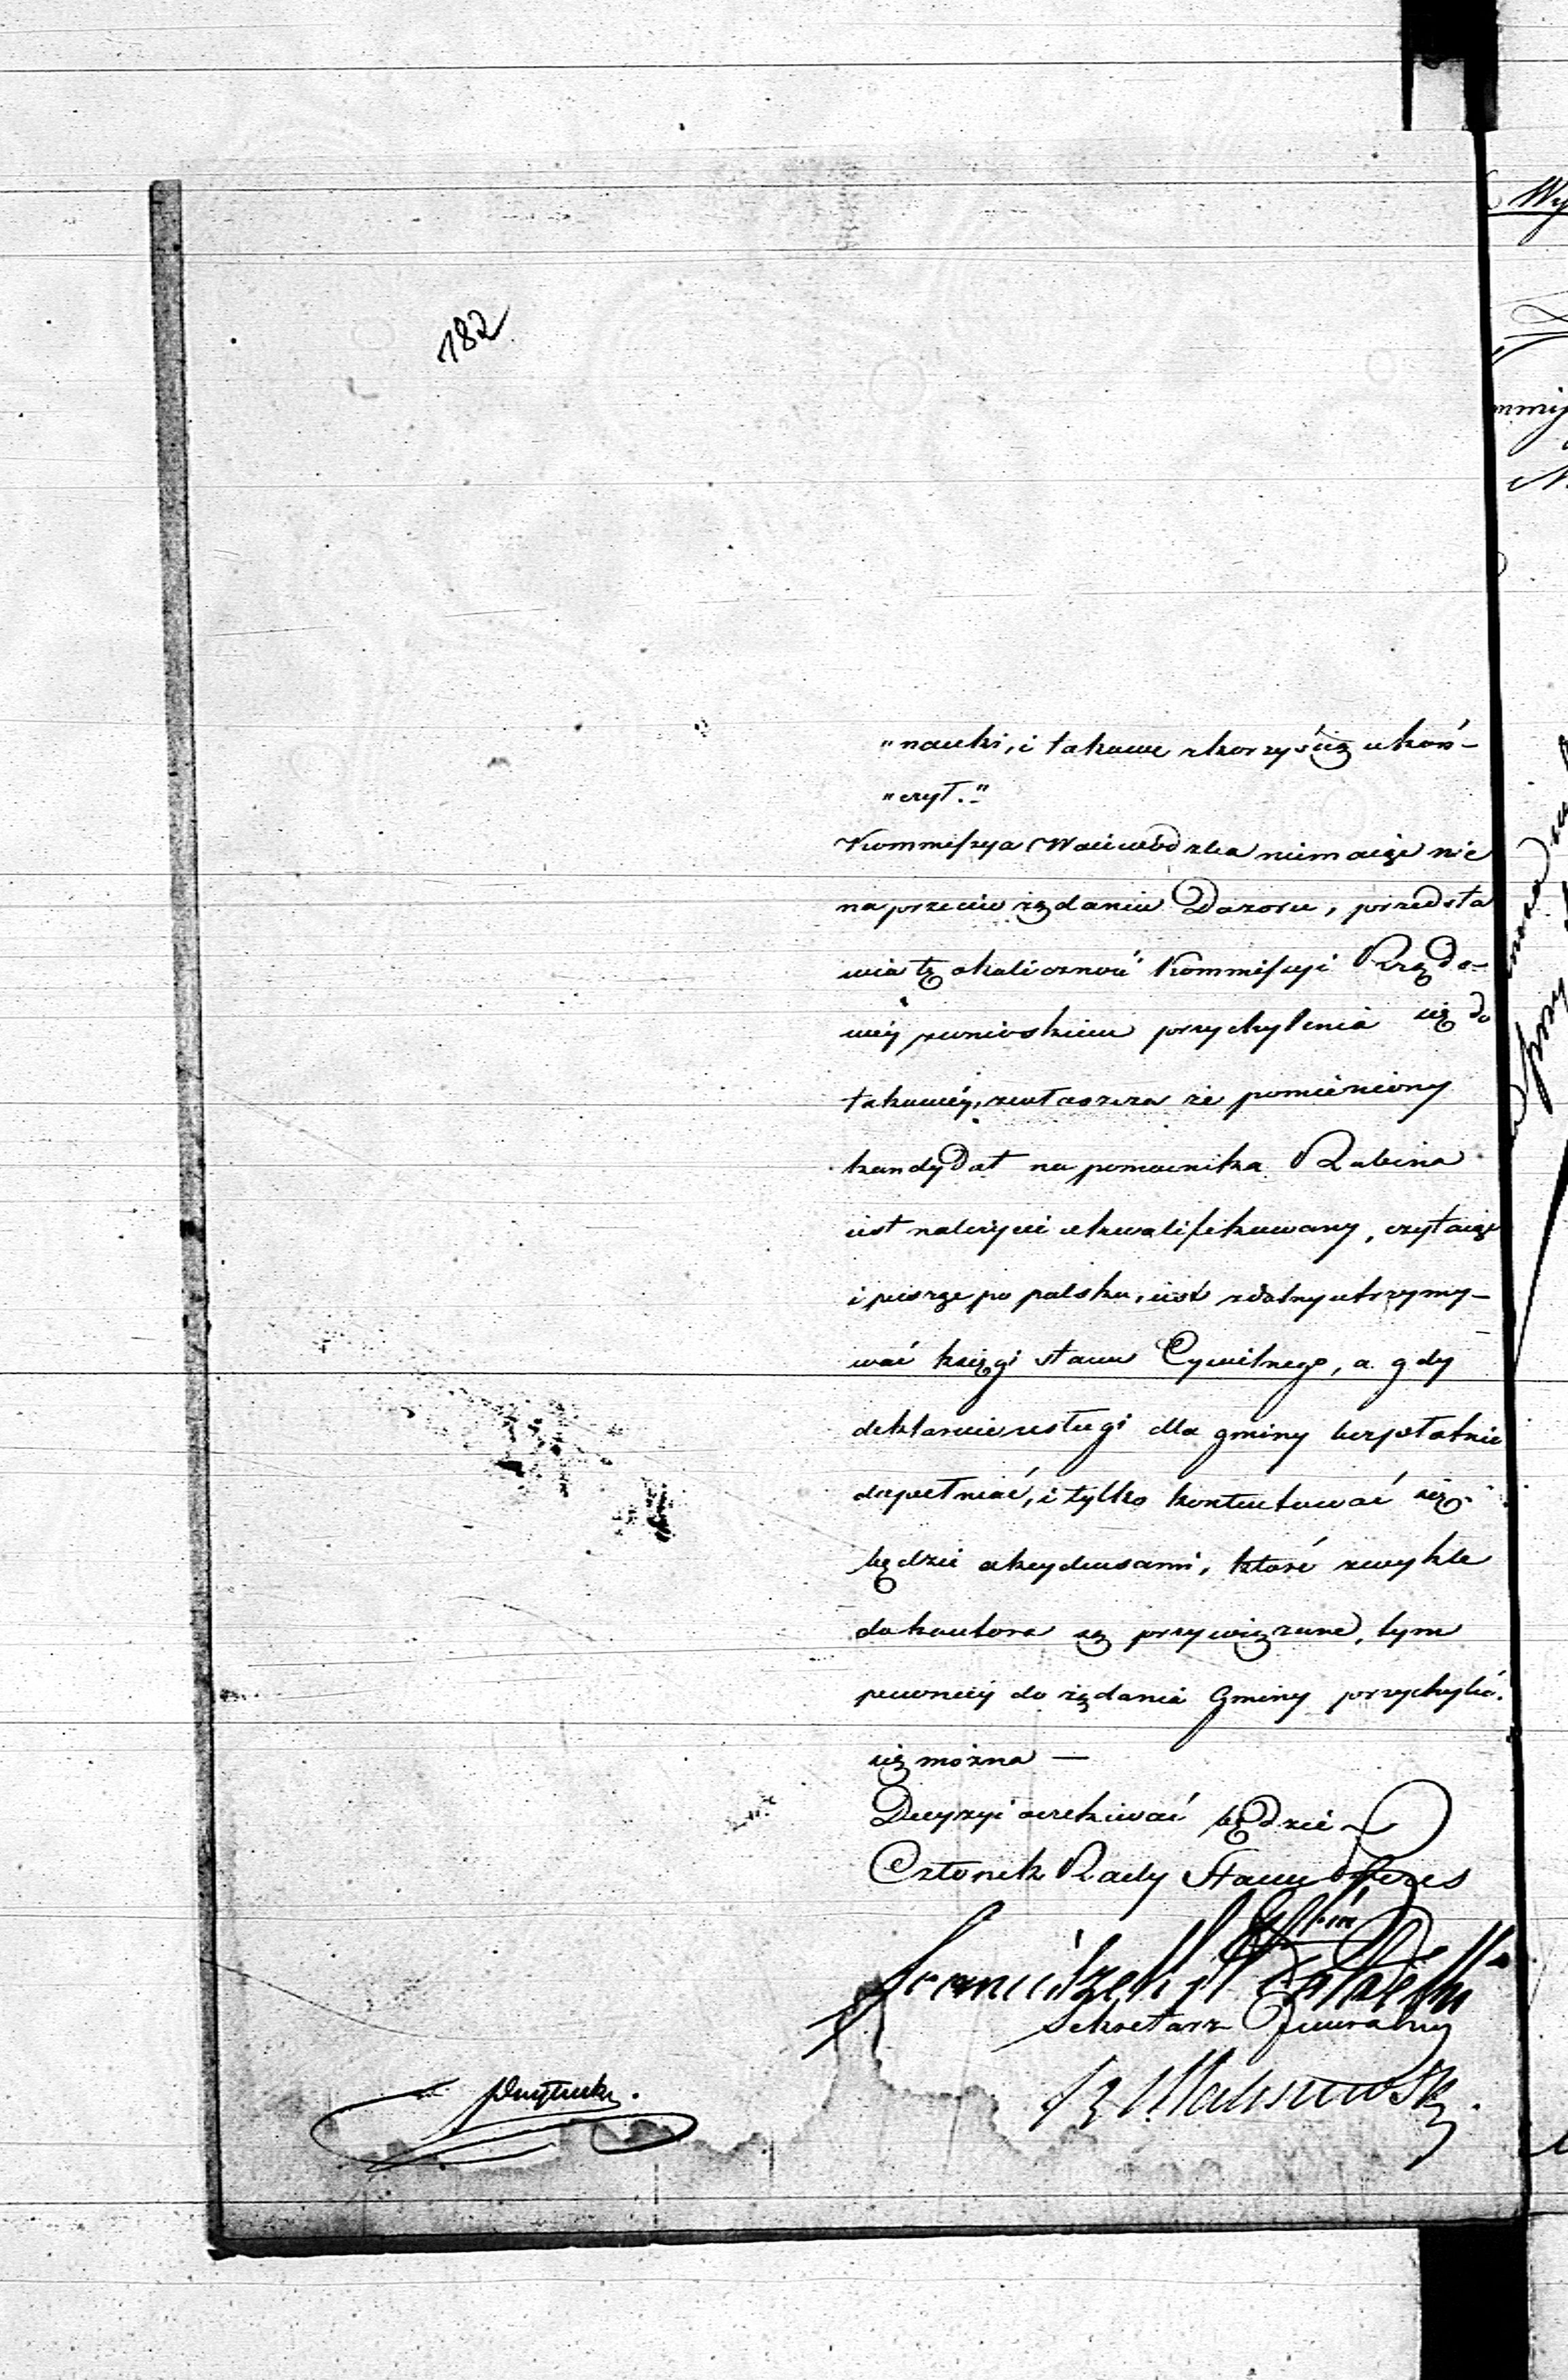 182
"nauki, i takowe zkorzyścią ukoń-
"czył."
Kommissya Woiewódzka niemaiąc nic
naprzeciw żądaniu Dozoru, przedsta
wia tę okoliczność Kommissyi Rządo-
wéy zwnioskiem przychylenia się do
takowéy, zwłaszcza że pomieniony
kandydat na pomocnika Rabina
iest należycie ukwalifikowany, czytaiąc
i pisząc po polsku, iest zdolny utrzymy-
wać księgi stanu Cywilnego, a gdy
deklaruie usługi dla gminy bezpłatnie
dopełniać, i tylko kontentować się
będzie akcydensami, które zwykle
do kantora są przywiązane, tym
pewniey do żądania Gminy przychylić
się można —
Decyzyi oczekiwać będzie
Członek Rady Stanu Prezes
Sekretarz Jeneralny